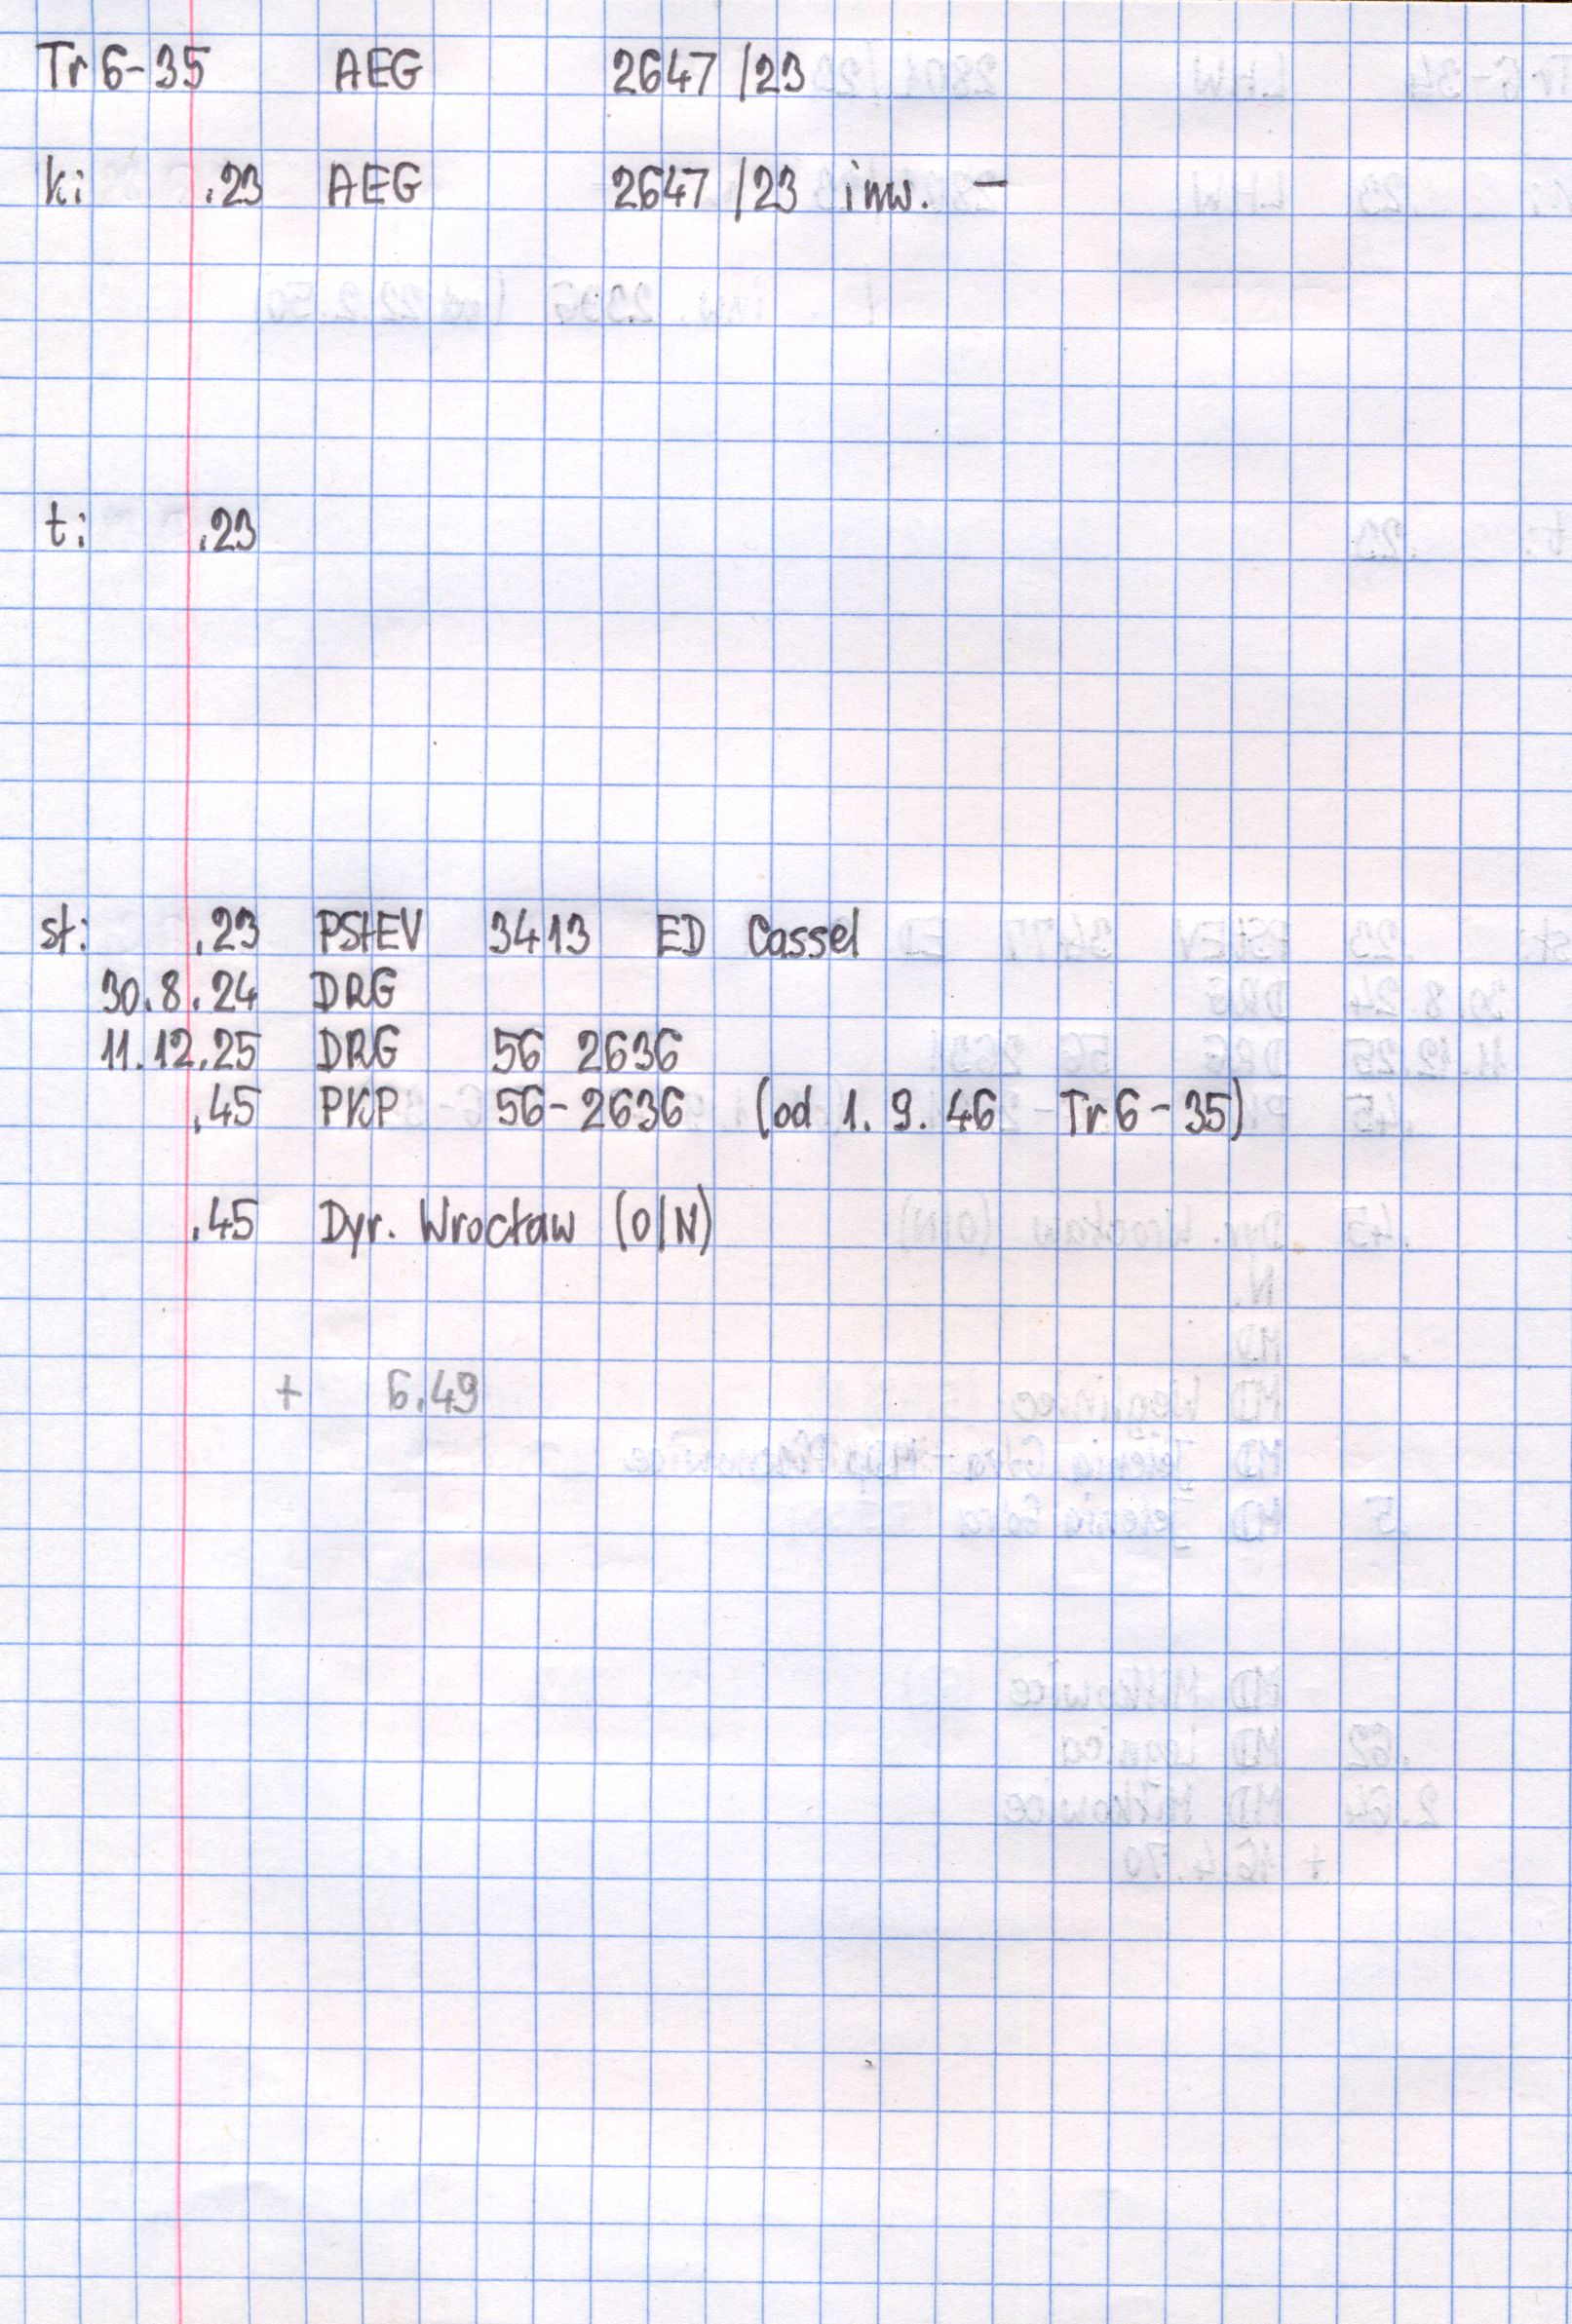 Tr6-35 AEG 2647/23
ki .23 AEG 2647/23 inw. -
t: .23
st: .23 PStEV 3413 ED Cassel
30.8.24 DRG
11.12.25 DRG 56 2636
.45 PKP 56-2636 (od 1.9.46 Tr6-35)
.45 Dyr. Wrocław (O/N)
+ 6.49